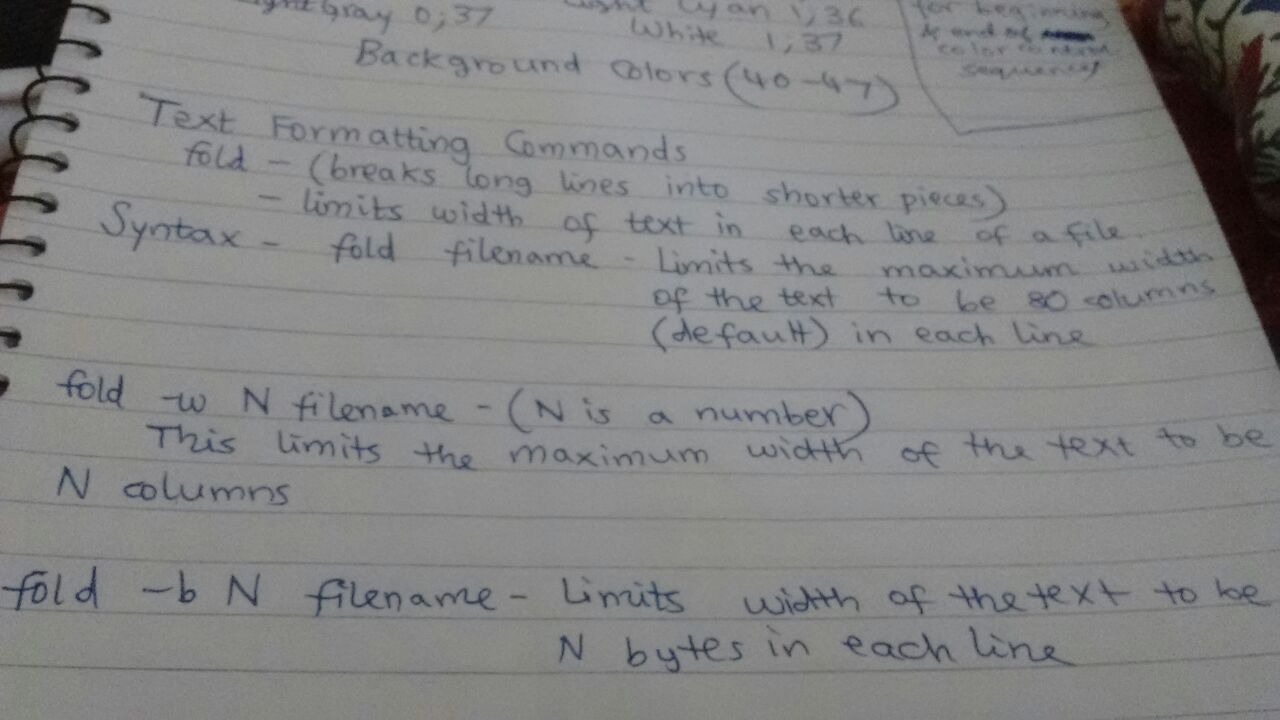 Gray 0;37
Light Cyan 1;36
White 1;37
for beginning
& end of
color
sequences
Background Colors (40-47)
Text Formatting Commands
fold - (breaks long lines into shorter pieces)
- limits width of text in each line of a file
Syntax - fold filename - Limits the maximum width
of the text to be 80 columns
(default) in each line
fold -w N filename - (N is a number)
This limits the maximum width of the text to be
N columns
fold -b N filename - Limits width of the text to be
N bytes in each line